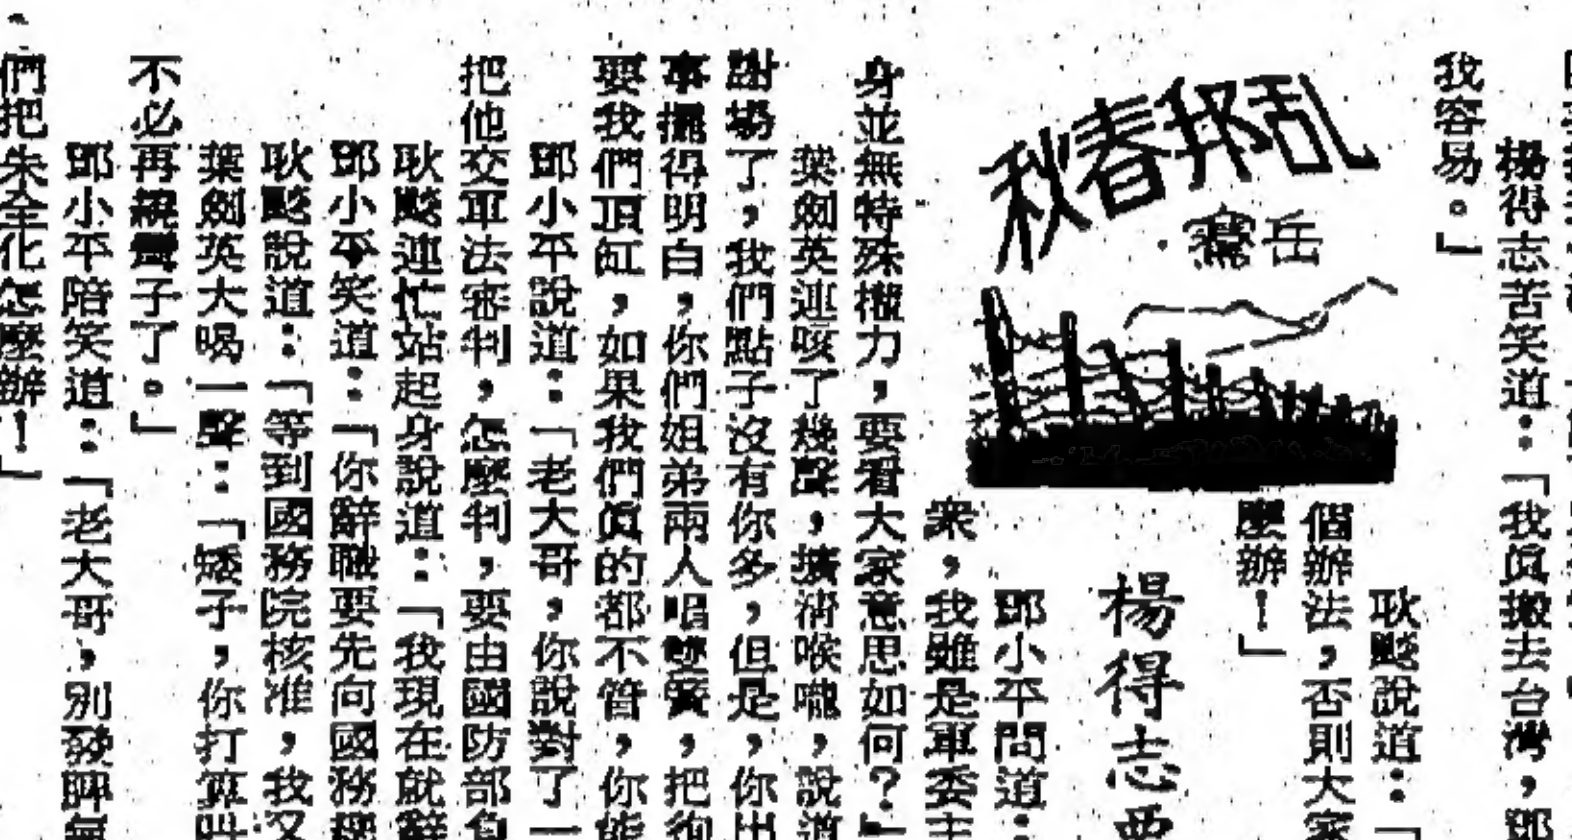 楊得志苦笑道：「我真搬去台灣，鄧
我容易。」
乱邦春秋
岳騫
耿飈說道：「
個辦法，否則大家
麼辦！」
楊得志要
鄧小平問道：
眾，我雖是軍委主
身並無特殊權力，要看大家意思如何？」
葉劍英連咳了幾聲，擴清喉嚨，說道
謝場了，我們點子沒有你多，但是，你出
事擺得明白，你們姐弟兩人唱雙簧，把徇
要我們頂缸，如果我們真的都不管，你能
鄧小平說道：「老大哥，你說對了一
把他交軍法審判，怎麼判，要由國防部負
耿飈連忙站起身說道：「我現在就辭
鄧小平笑道：「你辭職要先向國務
耿飈說道：「等到國務院核准，我又
葉劍英大喝一聲：「矮子，你打算叫
不必再繞彎子了。」
鄧小平陪笑道：「老大哥，別發脾氣
們把朱全化怎麼辦！」